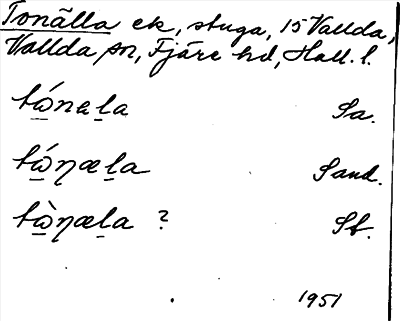 Tonälla ek, stuga, 15 Vallda,
Vallda sn, Fjäre hd, Hall. l.
tώneḻa Sa.
tώŋæḻa Sand.
tὼŋæḻa ? Sf.
1951